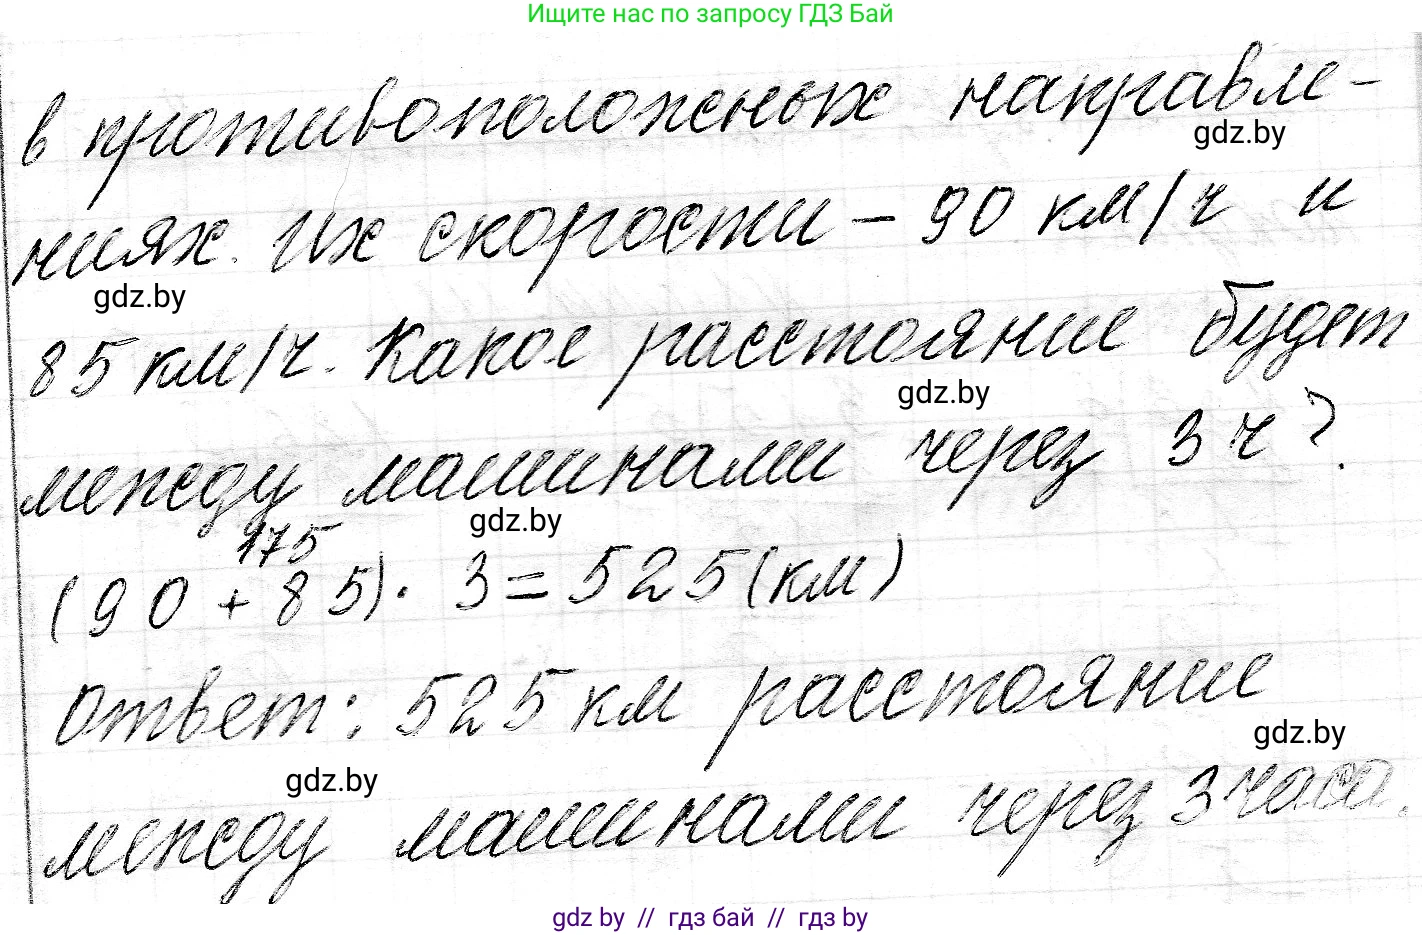 Ищите нас по запросу ГДЗ Бай
в противоположных направле-
gdz.by
ниях. Их скорости – 90 км/ч и
gdz.by
85 км/ч. Какое расстояние будет
gdz.by
между машинами через 3 ч?
gdz.by
175
(90 + 85) · 3 = 525 (км)
Ответ: 525 км расстояние
gdz.by
gdz.by
между машинами через 3 часа.
gdz by // гдз бай // гдз by